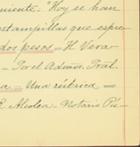 niente. "Hoy se han
estampillas que expre
dos pesos = H Vera
- Por el Admor. Pral.
ta = Una rúbrica =
E. Alcolea = Notario Pú-